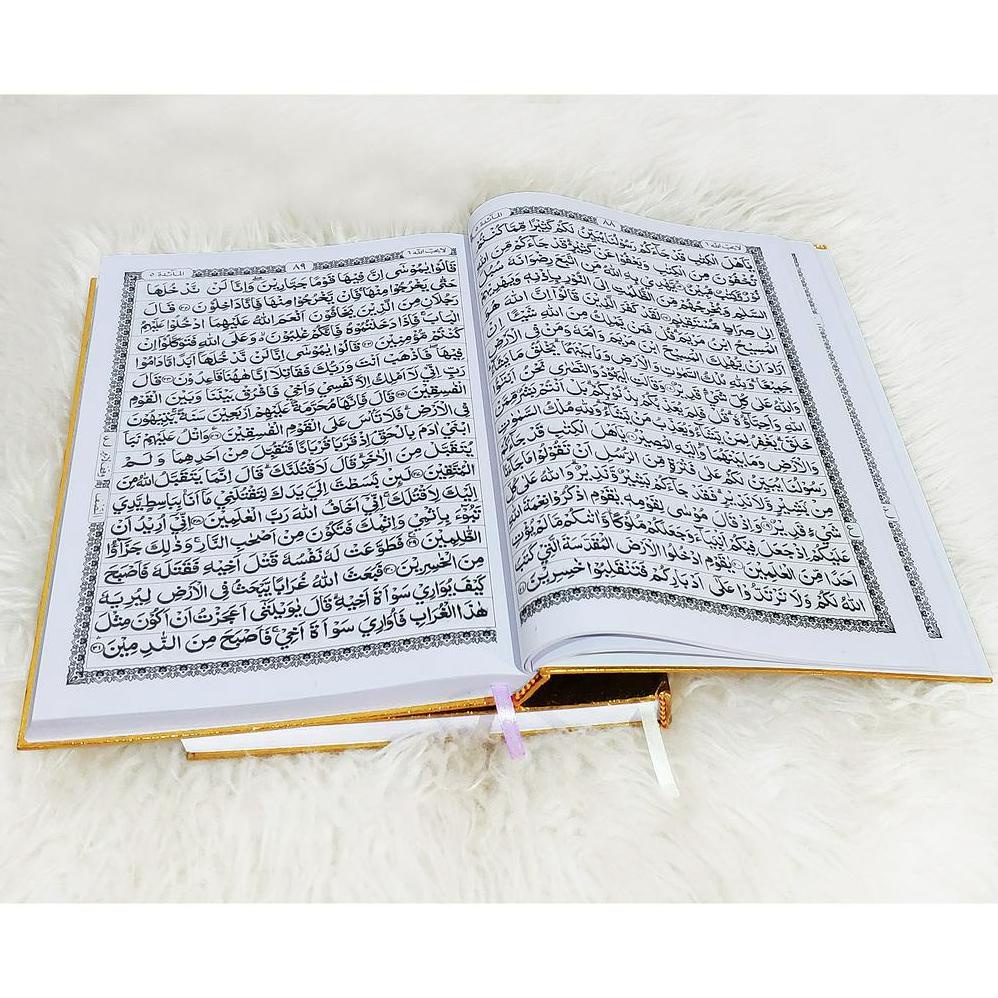 لا يحب الله ٦ ٨٨ المائدة ٥
يٰۤاَهْلَ الْكِتٰبِ قَدْ جَآءَكُمْ رَسُوْلُنَا يُبَيِّنُ لَكُمْ كَثِيْرًا مِّمَّا كُنْتُمْ
تُخْفُوْنَ مِنَ الْكِتٰبِ وَيَعْفُوْا عَنْ كَثِيْرٍ ؕ قَدْ جَآءَكُمْ مِّنَ اللّٰهِ
نُوْرٌ وَّكِتٰبٌ مُّبِيْنٌ ۱۵ يَّهْدِيْ بِهِ اللّٰهُ مَنِ اتَّبَعَ رِضْوَانَهٗ سُبُلَ
السَّلٰمِ وَيُخْرِجُهُمْ مِّنَ الظُّلُمٰتِ اِلَى النُّوْرِ بِاِذْنِهٖ وَيَهْدِيْهِمْ
اِلٰى صِرَاطٍ مُّسْتَقِيْمٍ ۱۶ لَقَدْ كَفَرَ الَّذِيْنَ قَالُوْۤا اِنَّ اللّٰهَ هُوَ
الْمَسِيْحُ ابْنُ مَرْيَمَ ؕ قُلْ فَمَنْ يَّمْلِكُ مِنَ اللّٰهِ شَيْئًا اِنْ
اَرَادَ اَنْ يُّهْلِكَ الْمَسِيْحَ ابْنَ مَرْيَمَ وَاُمَّهٗ وَمَنْ فِي الْاَرْضِ
جَمِيْعًا ؕ وَلِلّٰهِ مُلْكُ السَّمٰوٰتِ وَالْاَرْضِ وَمَا بَيْنَهُمَا ؕ يَخْلُقُ مَا يَشَآءُ ؕ
وَاللّٰهُ عَلٰى كُلِّ شَيْءٍ قَدِيْرٌ ۱۷ وَقَالَتِ الْيَهُوْدُ وَالنَّصٰرٰى نَحْنُ
اللّٰهِ وَاَحِبَّآؤُهٗ ؕ قُلْ فَلِمَ يُعَذِّبُكُمْ بِذُنُوْبِكُمْ ؕ بَلْ اَنْتُمْ بَشَرٌ
خَلَقَ ؕ يَغْفِرُ لِمَنْ يَّشَآءُ وَيُعَذِّبُ مَنْ يَّشَآءُ ؕ وَلِلّٰهِ مُلْكُ السَّمٰوٰتِ
وَالْاَرْضِ وَمَا بَيْنَهُمَا ؗ وَاِلَيْهِ الْمَصِيْرُ ۱۸ يٰۤاَهْلَ الْكِتٰبِ قَدْ جَآءَكُمْ
رَسُوْلُنَا يُبَيِّنُ لَكُمْ عَلٰى فَتْرَةٍ مِّنَ الرُّسُلِ اَنْ تَقُوْلُوْا مَا جَآءَنَا
مِنْ بَشِيْرٍ وَّلَا نَذِيْرٍ ؗ فَقَدْ جَآءَكُمْ بَشِيْرٌ وَّنَذِيْرٌ ؕ وَاللّٰهُ عَلٰى كُلِّ
شَيْءٍ قَدِيْرٌ ۱۹ وَاِذْ قَالَ مُوْسٰى لِقَوْمِهٖ يٰقَوْمِ اذْكُرُوْا نِعْمَةَ اللّٰهِ
عَلَيْكُمْ اِذْ جَعَلَ فِيْكُمْ اَنْۢبِيَآءَ وَجَعَلَكُمْ مُّلُوْكًا ۖ وَّاٰتٰىكُمْ مَّا لَمْ يُؤْتِ
اَحَدًا مِّنَ الْعٰلَمِيْنَ ۲۰ يٰقَوْمِ ادْخُلُوا الْاَرْضَ الْمُقَدَّسَةَ الَّتِيْ كَتَبَ
اللّٰهُ لَكُمْ وَلَا تَرْتَدُّوْا عَلٰۤى اَدْبَارِكُمْ فَتَنْقَلِبُوْا خٰسِرِيْنَ ۲۱
لا يحب الله ٦ ٨٩ المائدة ٥
قَالُوْا يٰمُوْسٰۤى اِنَّ فِيْهَا قَوْمًا جَبَّارِيْنَ ۖ وَاِنَّا لَنْ نَّدْخُلَهَا
حَتّٰى يَخْرُجُوْا مِنْهَا ۚ فَاِنْ يَّخْرُجُوْا مِنْهَا فَاِنَّا دٰخِلُوْنَ ۲۲ قَالَ
رَجُلٰنِ مِنَ الَّذِيْنَ يَخَافُوْنَ اَنْعَمَ اللّٰهُ عَلَيْهِمَا ادْخُلُوْا عَلَيْهِمُ
الْبَابَ ۚ فَاِذَا دَخَلْتُمُوْهُ فَاِنَّكُمْ غٰلِبُوْنَ ۚ وَعَلَى اللّٰهِ فَتَوَكَّلُوْۤا اِنْ
كُنْتُمْ مُّؤْمِنِيْنَ ۲۳ قَالُوْا يٰمُوْسٰۤى اِنَّا لَنْ نَّدْخُلَهَاۤ اَبَدًا مَّا دَامُوْا
فِيْهَا فَاذْهَبْ اَنْتَ وَرَبُّكَ فَقَاتِلَاۤ اِنَّا هٰهُنَا قَاعِدُوْنَ ۲۴ قَالَ
رَبِّ اِنِّيْ لَاۤ اَمْلِكُ اِلَّا نَفْسِيْ وَاَخِيْ فَافْرُقْ بَيْنَنَا وَبَيْنَ الْقَوْمِ
الْفٰسِقِيْنَ ۲۵ قَالَ فَاِنَّهَا مُحَرَّمَةٌ عَلَيْهِمْ اَرْبَعِيْنَ سَنَةً ۚ يَتِيْهُوْنَ
فِي الْاَرْضِ ؕ فَلَا تَاْسَ عَلَى الْقَوْمِ الْفٰسِقِيْنَ ۲۶ وَاتْلُ عَلَيْهِمْ نَبَاَ
ابْنَيْ اٰدَمَ بِالْحَقِّ ۘ اِذْ قَرَّبَا قُرْبَانًا فَتُقُبِّلَ مِنْ اَحَدِهِمَا وَلَمْ
يُتَقَبَّلْ مِنَ الْاٰخَرِ ؕ قَالَ لَاَقْتُلَنَّكَ ؕ قَالَ اِنَّمَا يَتَقَبَّلُ اللّٰهُ مِنَ
الْمُتَّقِيْنَ ۲۷ لَئِنْۢ بَسَطْتَّ اِلَيَّ يَدَكَ لِتَقْتُلَنِيْ مَاۤ اَنَا بِبَاسِطٍ يَّدِيَ
اِلَيْكَ لِاَقْتُلَكَ ۚ اِنِّيْۤ اَخَافُ اللّٰهَ رَبَّ الْعٰلَمِيْنَ ۲۸ اِنِّيْۤ اُرِيْدُ اَنْ
تَبُوْٓءَ بِاِثْمِيْ وَاِثْمِكَ فَتَكُوْنَ مِنْ اَصْحٰبِ النَّارِ ۚ وَذٰلِكَ جَزٰٓؤُا
الظّٰلِمِيْنَ ۲۹ فَطَوَّعَتْ لَهٗ نَفْسُهٗ قَتْلَ اَخِيْهِ فَقَتَلَهٗ فَاَصْبَحَ
مِنَ الْخٰسِرِيْنَ ۳۰ فَبَعَثَ اللّٰهُ غُرَابًا يَّبْحَثُ فِي الْاَرْضِ لِيُرِيَهٗ
كَيْفَ يُوَارِيْ سَوْاَةَ اَخِيْهِ ؕ قَالَ يٰوَيْلَتٰۤى اَعَجَزْتُ اَنْ اَكُوْنَ مِثْلَ
هٰذَا الْغُرَابِ فَاُوَارِيَ سَوْاَةَ اَخِيْ ۚ فَاَصْبَحَ مِنَ النّٰدِمِيْنَ ۳۱